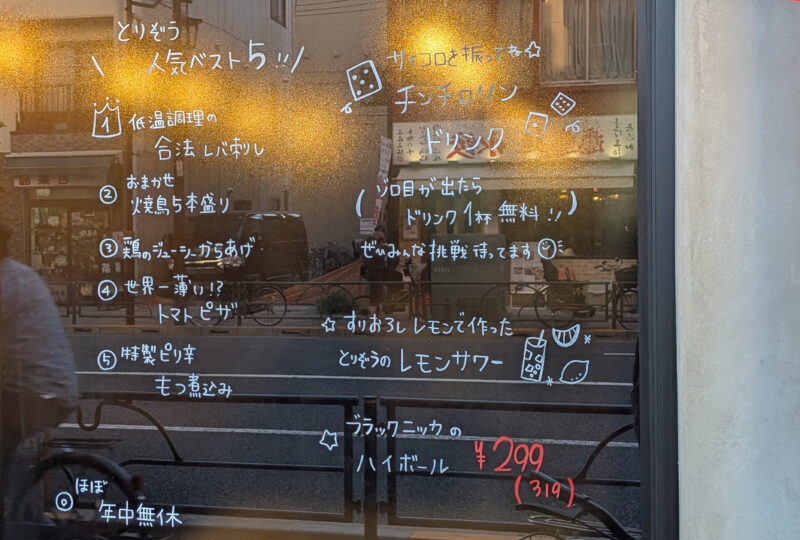 とりぞう
人気ベスト5!!
1 低温調理の
合法レバ刺し
② おまかせ
焼鳥5本盛り
③ 鶏のジューシーからあげ
④ 世界一薄い!?
トマトピザ
⑤ 特製ピリ辛
もつ煮込み
◎ ほぼ
年中無休
サイコロを振ってね☆
チンチロリン
ドリンク
(ゾロ目が出たら
ドリンク1杯無料!!)
ぜひみんな挑戦待ってます
☆ すりおろしレモンで作った
とりぞうのレモンサワー
☆ ブラックニッカの
ハイボール ¥299
(319)